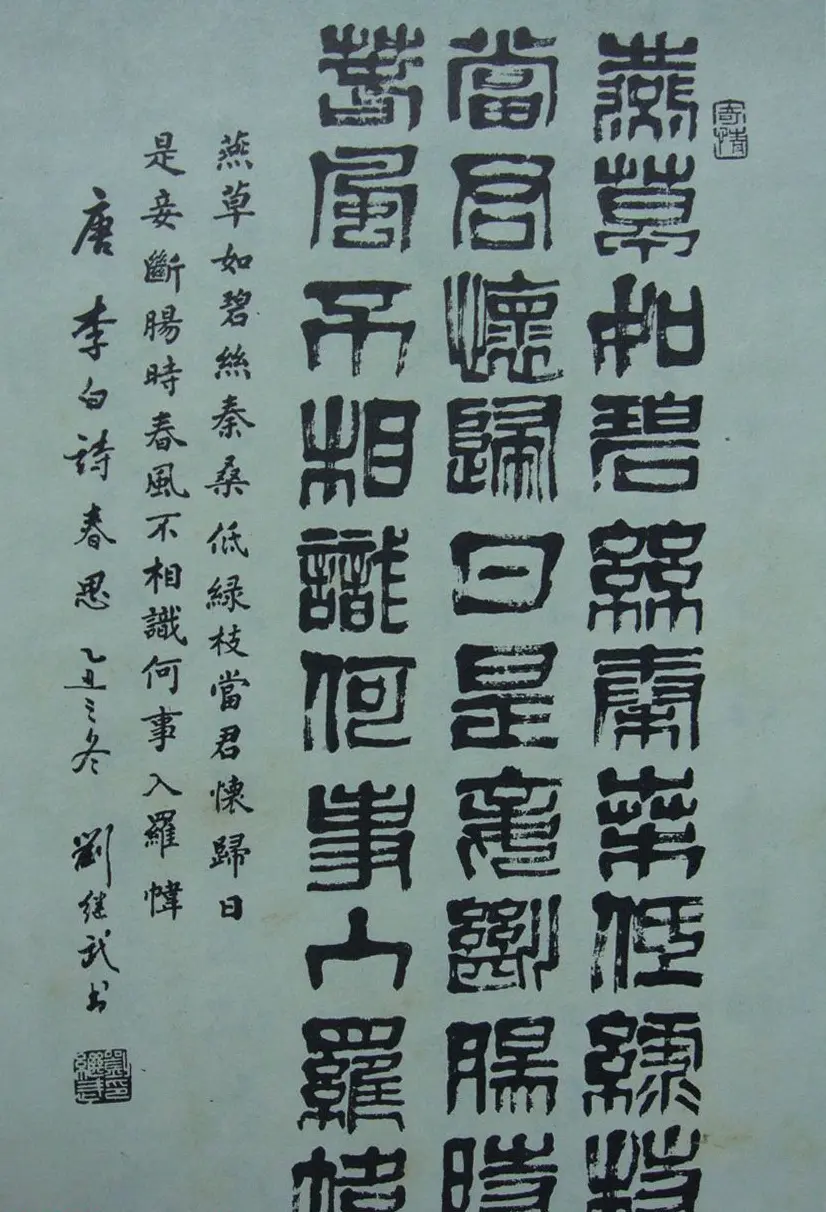 寄情
燕草如碧絲秦桑低綠枝
當君懷歸日是妾斷腸時
春風不相識何事入羅幃
燕草如碧絲秦桑低緑枝當君懷歸日
是妾斷腸時春風不相識何事入羅幃
唐李白詩春思 乙丑之冬 劉继武书
劉继武印